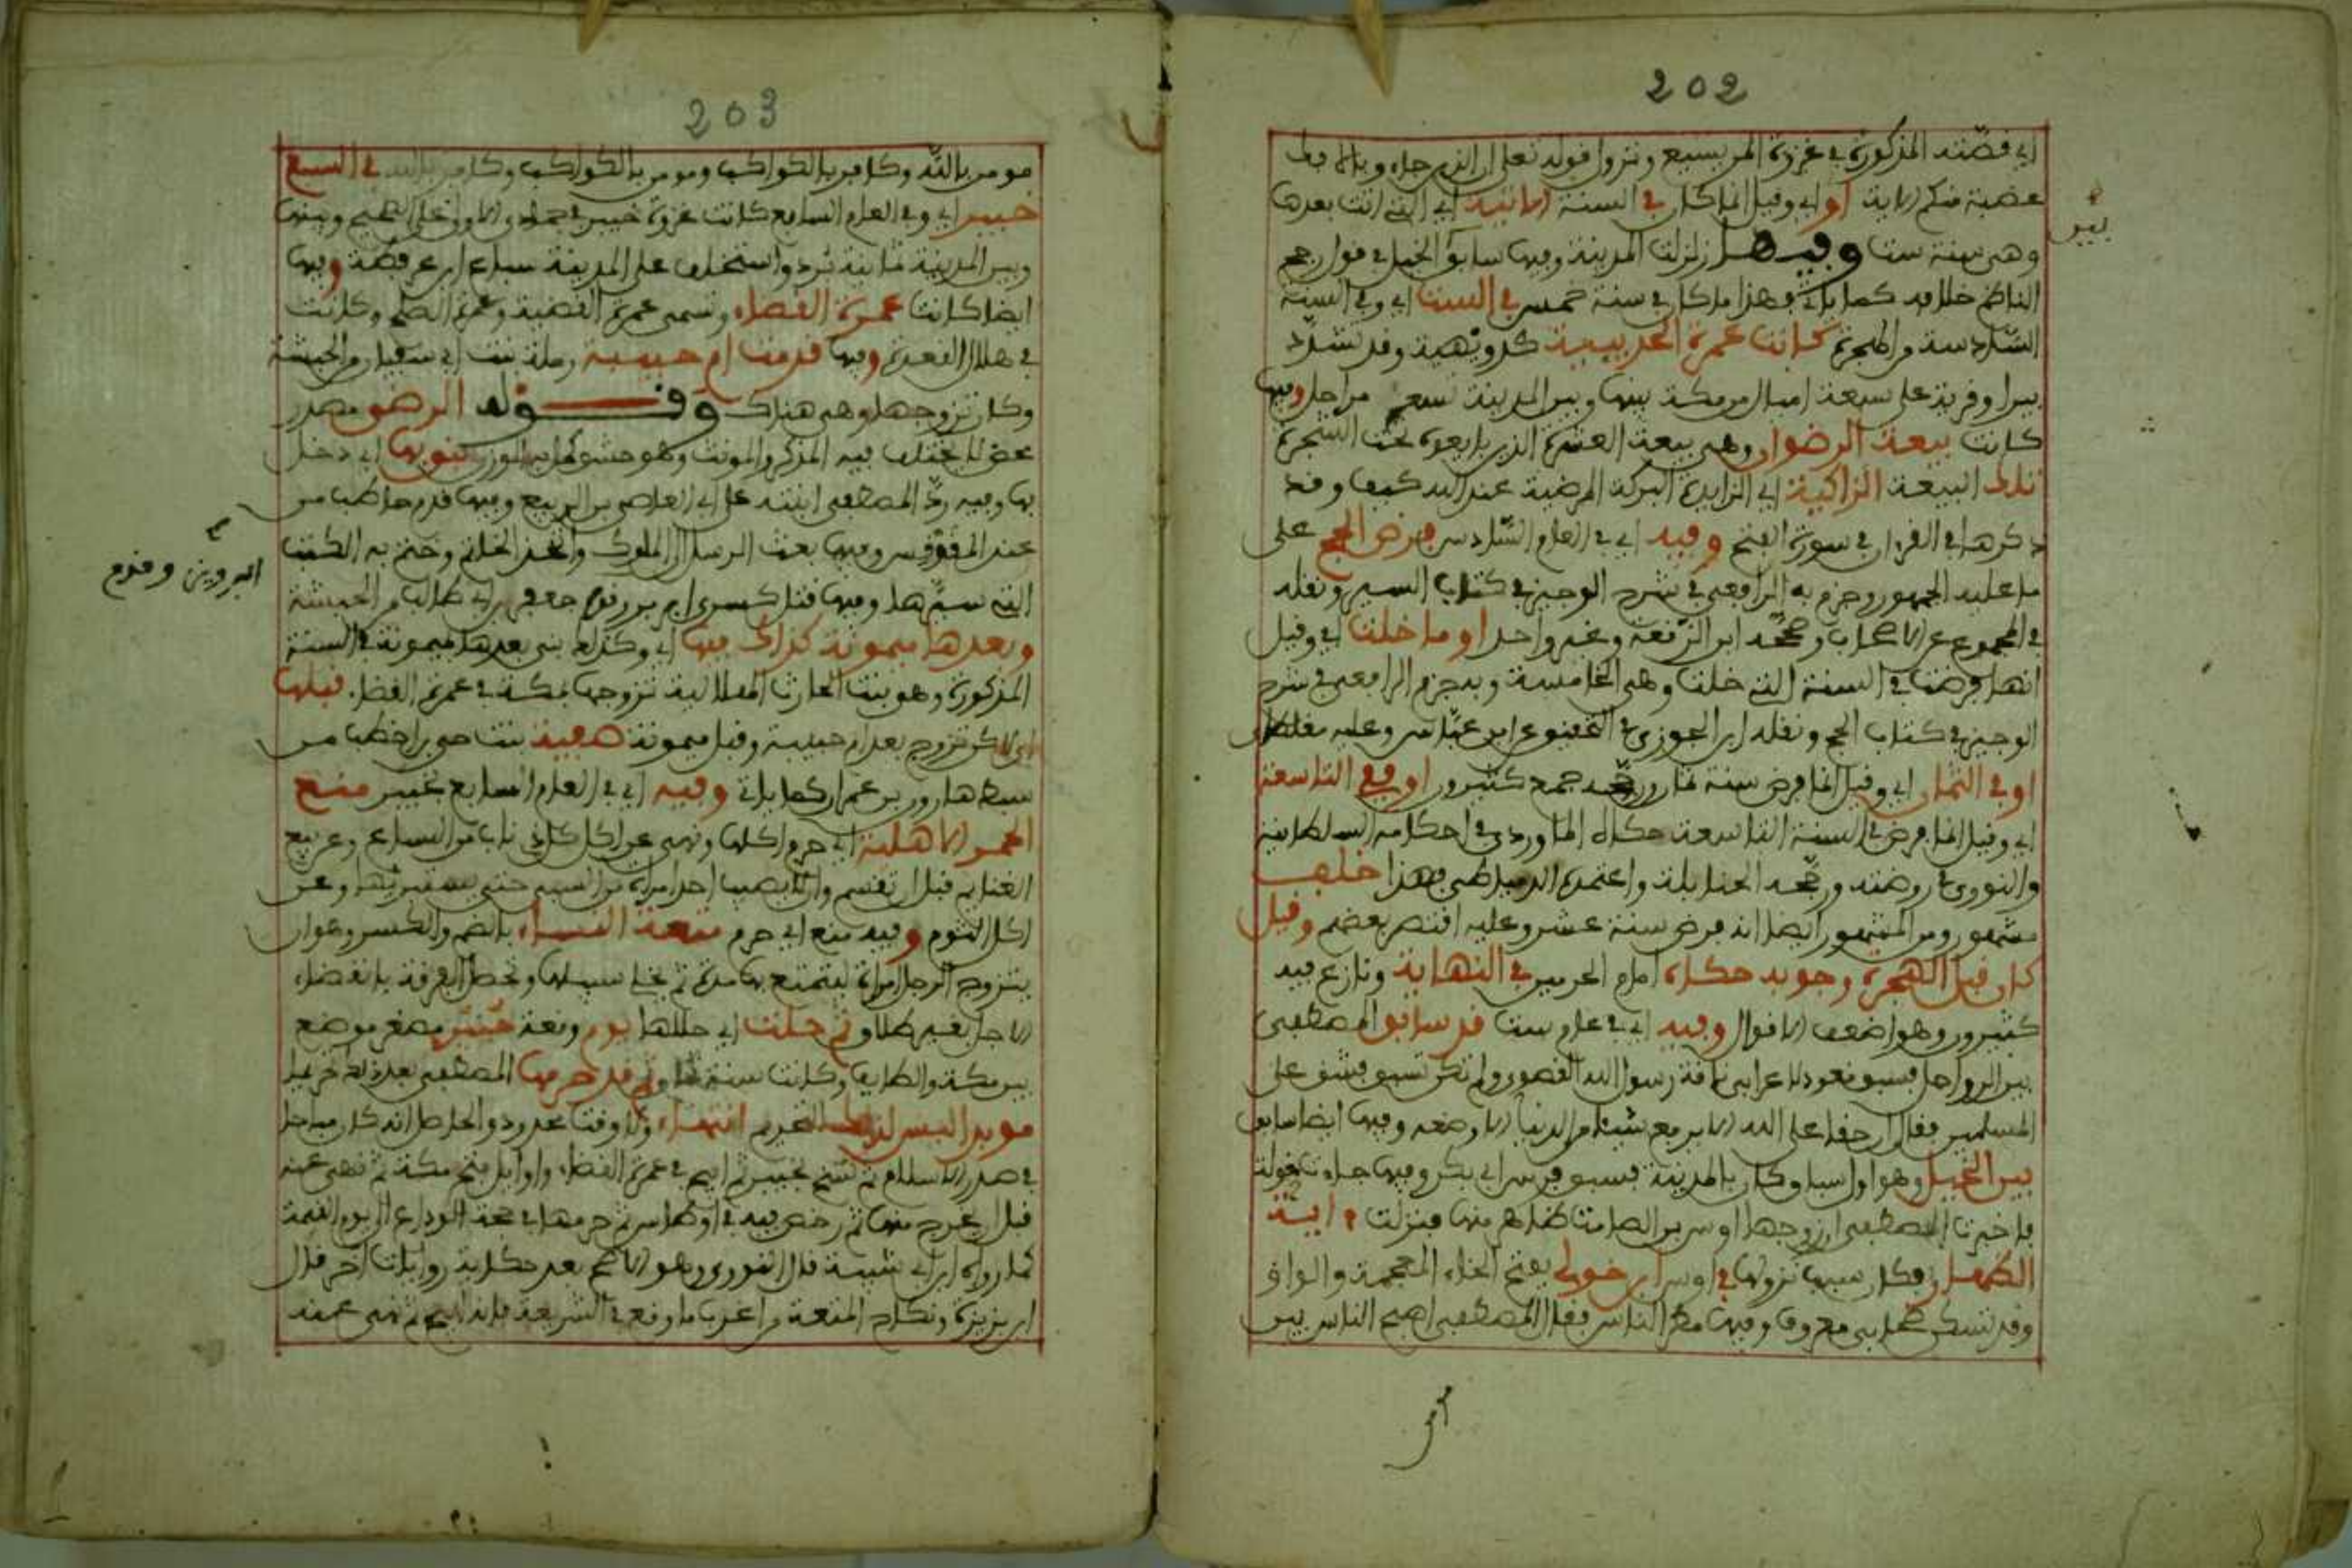 202
اي قصته المذكورة في غزوة المريسيع ونزول قوله تعلى ان الذين جاءو بالافك
عصبة منكم الاية او اي وقيل انما كان في السنة الاتية اي التي اتت بعدها
وهي سنة ست وفيها زلزلت المدينة وفيها سابق الخيل في قول رجح
بير
الناظم خلافه كما ياتي فهذا ما كان في سنة خمس في الست اي وفي السنة
السادسة من الهجرة كانت عمرة الحديبية كدويهية وقد تشدد
بير او قرية على سبعة اميال من مكة بينها وبين المدينة تسع مراحل وفيها
كانت بيعة الرضوان وهي بيعة العشرة الذين بايعوه تحت الشجرة
تلك البيعة الزاكية اي الزايدة البركة المرضية عند الله كيف وقد
ذكرها في القران في سورة الفتح وفيه اي في العام السادس فرض الحج على
ما عليه الجمهور وجزم به الرافعي في شرح الوجيز في كتاب السير ونقله
في المجموع عن الاصحاب وصححه ابن الرفعة وغير واحد او ما خلت اي وقيل
انها فرضت في السنة التي خلت وهي الخامسة وبه جزم الرافعي في شرح
الوجيز في كتاب الحج ونقله ابن الجوزي في التحقيق عن ابن عباس وعليه
او في الثمان اي وقيل انما فرض سنة ثمان ورجحه جمع كثيرون او في التاسعة
اي وقيل انما فرض في السنة التاسعة حكاه الماوردي في احكامه السلطانية
والنووي في روضته ورجحه الحنابلة واعتمده الدمياطي فهذا خلف
مشهور ومن المشهور ايضا انه فرض سنة عشر وعليه اقتصر بعضهم وقيل
كان قبل الهجرة وجوبه حكاه امام الحرمين في النهاية ونازع فيه
كثيرون وهو اضعف الاقوال وفيه اي في عام ست قد سابق المصطفى
بين الرواحل فسبق قعود لاعرابي ناقة رسول الله القصوى ولم تكن تسبق فشق على
المسلمين فقال ان حقا على الله الا يرفع شيئا من الدنيا الا وضعه وفيها ايضا سابق
بين الخيل وهو اول سباق كان بالمدينة فسبق فرس ابي بكر وفيها جاءت خولة
فاخبرت المصطفى ان زوجها اوس بن الصامت ظاهر منها فنزلت اية
الظهار فكان سبب نزولها في اوس ابن خولي بفتح الخاء المعجمة والواو
وقد تسكن صحابي معروف وفيها مطر الناس فقال المصطفى اصبح الناس بين
203
مومن بالله وكافر بالكواكب ومومن بالكواكب وكافر بالله في السبع
خيبر اي وفي العام السابع كانت غزوة خيبر في جمادى الاولى على الصحيح وبينها
وبين المدينة ثمانية برد واستخلف على المدينة سباع ابن عرفطة وفيها
ايضا كانت عمرة القضاء وتسمى عمرة القضية وعمرة الصلح وكانت
في هلال القعدة وفيها قدمت ام حبيبة رملة بنت ابي سفيان من الحبشة
وكان تزوجها وهي هناك وقوله الرضى مصدر
محض لا يختلف فيه المذكر والمونث وهو حشو كمل به الوزن بها اي دخل
بها وفيه رد المصطفى ابنته على ابي العاص بن الربيع وفيها قدم حاطب من
عند المقوقس وفيها بعث الرسل الى الملوك واتخذ الخاتم وختم به الكتب
التي سيرها وفيها قتل كسرى ابرويز وقدوم جعفر بن ابي طالب من الحبشة
ابرويز وقدوم
وبعدها ميمونة كذاك فيها اي وكذلك بنى بعدها ميمونة في السنة
المذكورة وهو بنت الحارث الهلالية تزوجها بمكة في عمرة القضاء قبلها
اي لاكن تزوج بعد ام حبيبة وقبل ميمونة صفية بنت حيي بن اخطب من
سبط هارون بن عمران كما ياتي وفيه اي في العام السابع بخيبر منع
الحمر الاهلية اي حرم اكلها ونهى عن اكل كل ذي ناب من السباع وعن بيع
الغنايم قبل ان تقسم وان لا يصيب احد امراة من السبي حتى يستبريها وعن
اكل الثوم وفيه منع اي حرم متعة النساء بالضم والكسر وهو ان
يتزوج الرجل امراة ليتمتع بها مدة ثم يخلي سبيلها وتحصل الفرقة بانقضاء
الاجل بغير طلاق ثم حلت اي حللها يوم وقعة حنين مصغر موضع
بين مكة والطايف وكانت سنة ثمان ثم قد حرمها المصطفى بعد ذلك تحريما
موبدا ليس لذلك التحريم انتهاء ولا وقت محدود والحاصل انه كان مباحا
في صدر الاسلام ثم نسخ بخيبر ثم ابيح في عمرة القضاء واوايل فتح مكة ثم نهى عنه
قبل ان يخرج منها ثم رخص فيه في اوطاس ثم حرمها في حجة الوداع الى يوم القيمة
كما رواه ابن ابي شيبة قال النووي وهو الاصح بعد حكاية روايات اخر قال
ابن بزيزة ونكاح المتعة من اغرب ما وقع في الشريعة فانه ابيح ثم نهي عنه